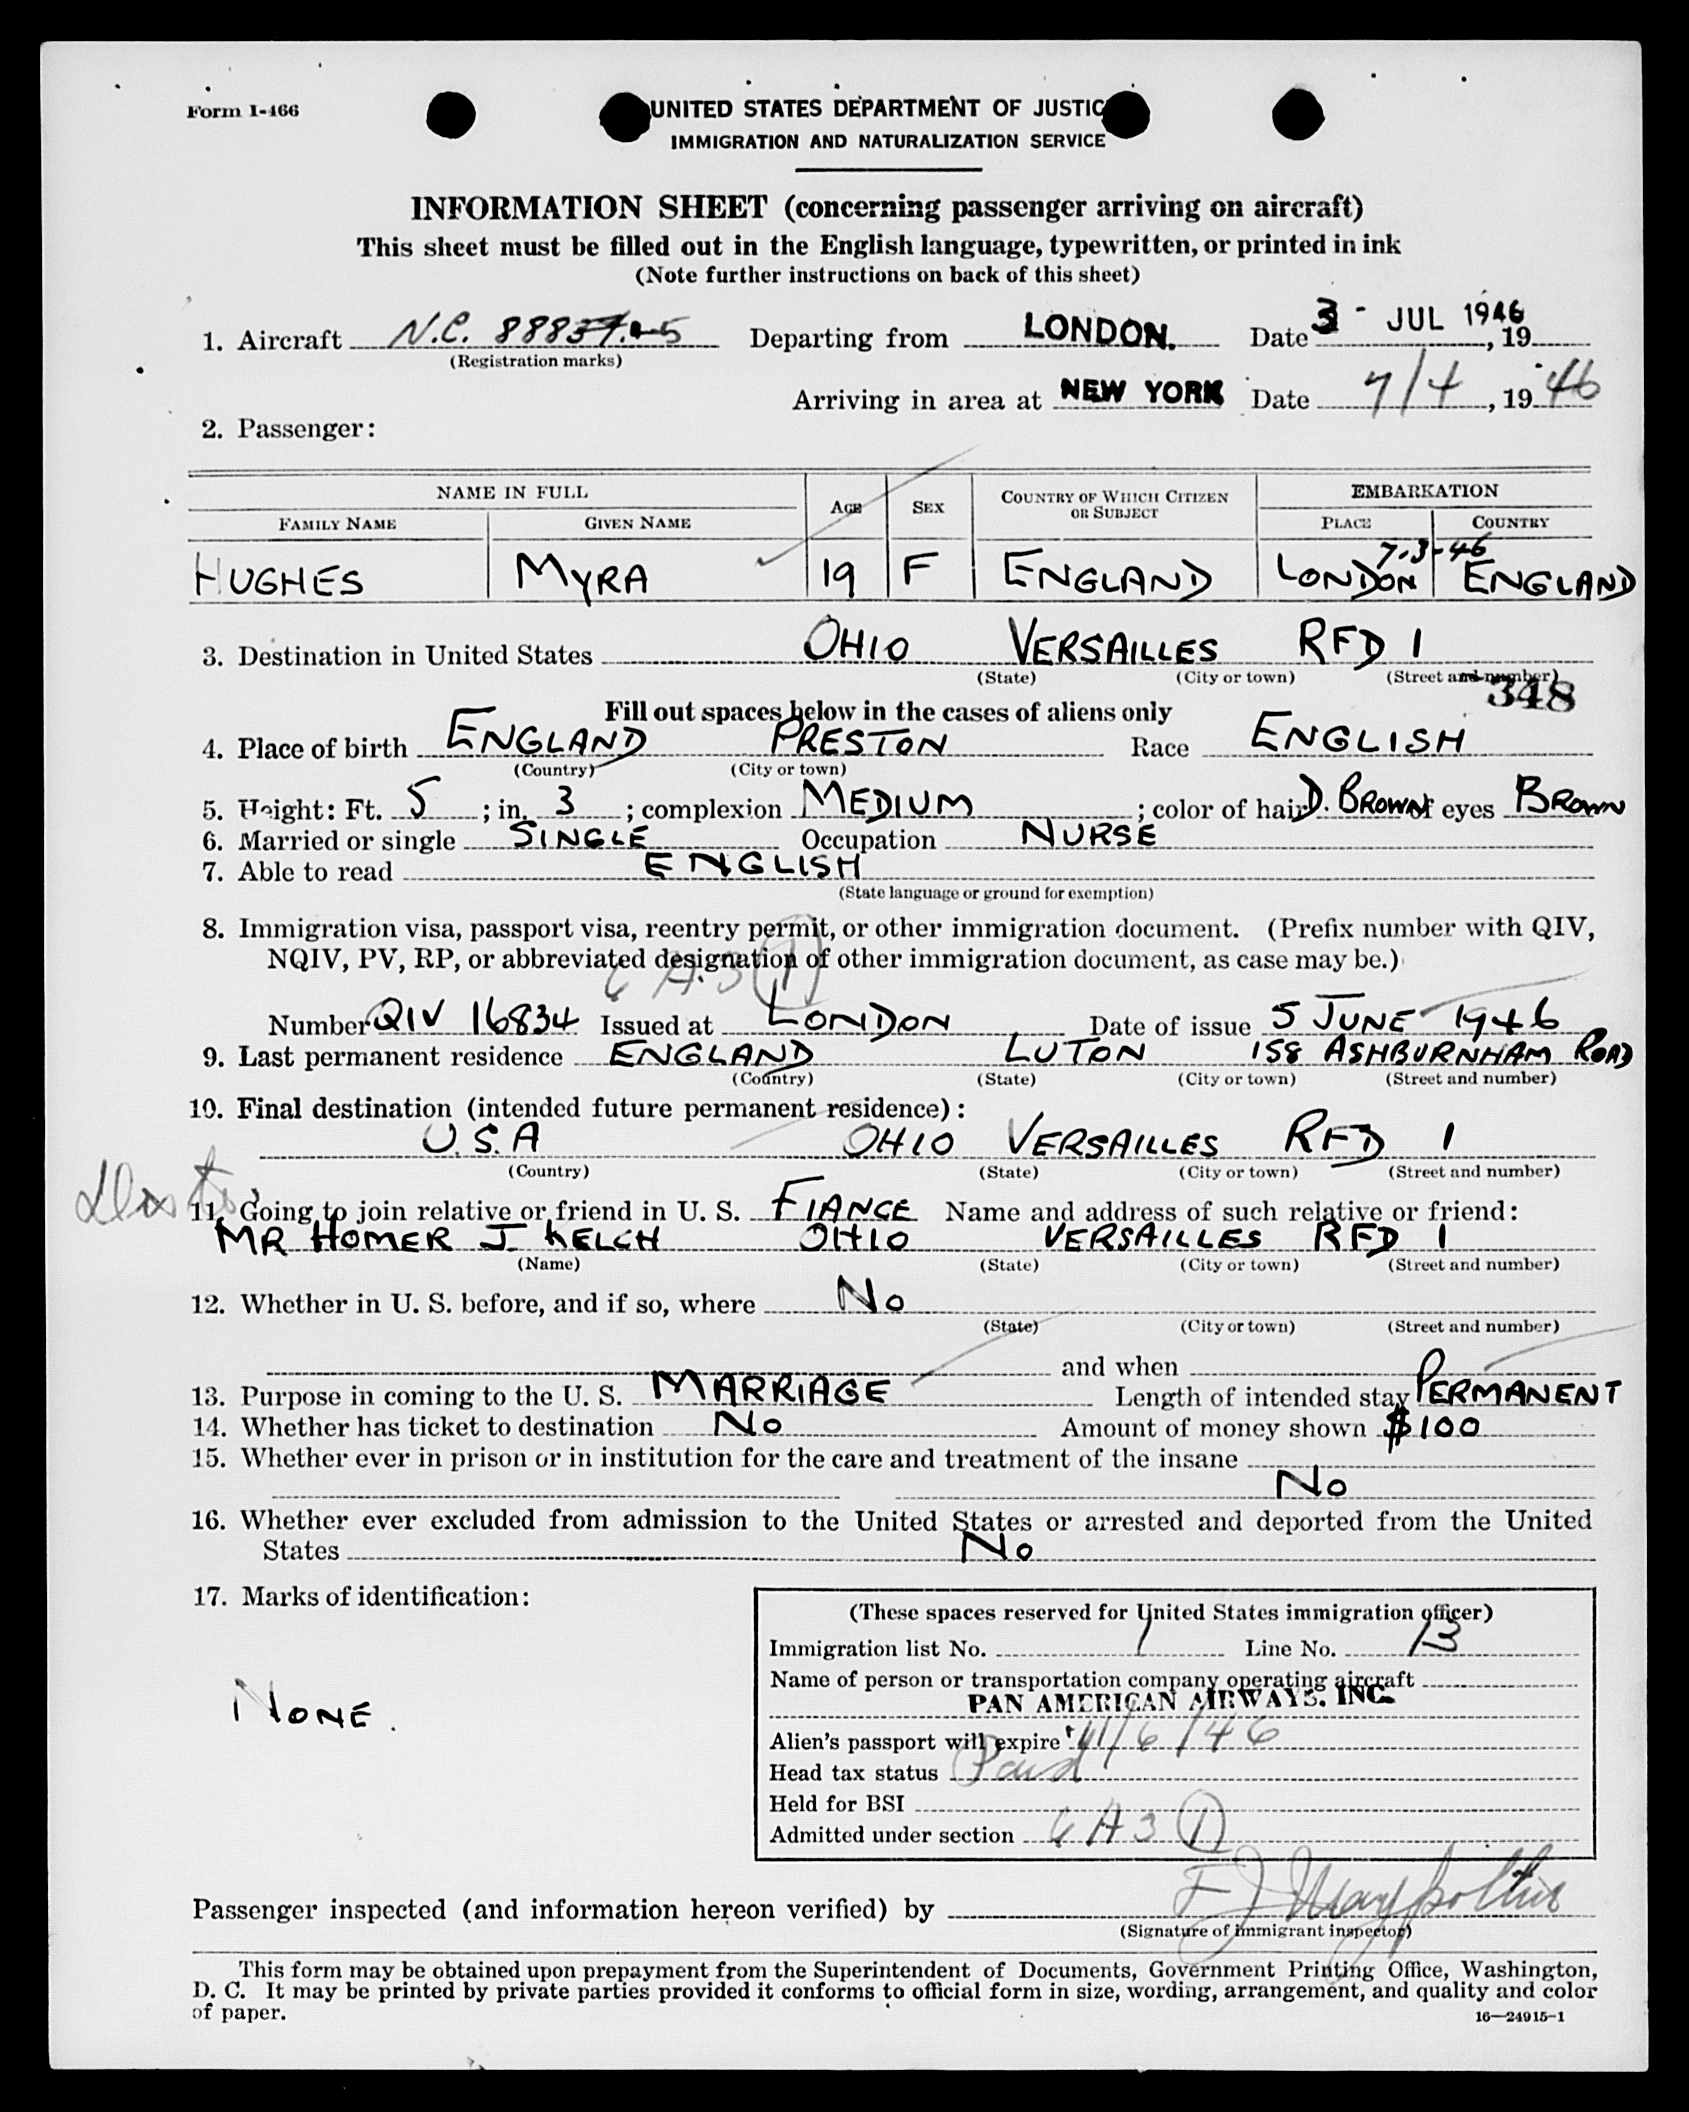 Form I-466
UNITED STATES DEPARTMENT OF JUSTIC
IMMIGRATION AND NATURALIZATION SERVICE
INFORMATION SHEET (concerning passenger arriving on aircraft)
This sheet must be filled out in the English language, typewritten, or printed in ink
(Note further instructions on back of this sheet)
1. Aircraft N.C. Departing from LONDON. Date 3 - JUL 1946, 19
(Registration marks)
Arriving in area at NEW YORK Date 7/4, 19 46
2. Passenger:
NAME IN FULL AGE SEX COUNTRY OF WHICH CITIZEN OR SUBJECT EMBARKATION
FAMILY NAME GIVEN NAME PLACE COUNTRY
7-3-46
HUGHES MYRA 19 F ENGLAND LONDON ENGLAND
3. Destination in United States OHIO VERSAILLES RFD 1
(State) (City or town) (Street and number)
348
Fill out spaces below in the cases of aliens only
4. Place of birth ENGLAND PRESTON Race ENGLISH
(Country) (City or town)
5. Height: Ft. 5 ; in. 3 ; complexion MEDIUM ; color of hair D. BROWN of eyes BROWN
6. Married or single SINGLE Occupation NURSE
7. Able to read ENGLISH
(State language or ground for exemption)
8. Immigration visa, passport visa, reentry permit, or other immigration document. (Prefix number with QIV,
NQIV, PV, RP, or abbreviated designation of other immigration document, as case may be.)
4 A.3 (1)
Number QIV 16834 Issued at LONDON Date of issue 5 JUNE 1946
9. Last permanent residence ENGLAND LUTON 158 ASHBURNHAM ROAD
(Country) (State) (City or town) (Street and number)
10. Final destination (intended future permanent residence):
U.S.A OHIO VERSAILLES RFD 1
(Country) (State) (City or town) (Street and number)
11. Going to join relative or friend in U. S. FIANCE Name and address of such relative or friend:
MR HOMER J. KELCH OHIO VERSAILLES RFD 1
(Name) (State) (City or town) (Street and number)
12. Whether in U. S. before, and if so, where No
(State) (City or town) (Street and number)
and when
13. Purpose in coming to the U. S. MARRIAGE Length of intended stay PERMANENT
14. Whether has ticket to destination No Amount of money shown $100
15. Whether ever in prison or in institution for the care and treatment of the insane
No
16. Whether ever excluded from admission to the United States or arrested and deported from the United
States No
17. Marks of identification:
NONE.
(These spaces reserved for United States immigration officer)
Immigration list No. 1 Line No. 13
Name of person or transportation company operating aircraft
PAN AMERICAN AIRWAYS, INC.
Alien's passport will expire 11/6/46
Head tax status Paid
Held for BSI
Admitted under section 4 A 3 (1)
Passenger inspected (and information hereon verified) by
(Signature of immigrant inspector)
This form may be obtained upon prepayment from the Superintendent of Documents, Government Printing Office, Washington,
D. C. It may be printed by private parties provided it conforms to official form in size, wording, arrangement, and quality and color
of paper.
16—24915-1